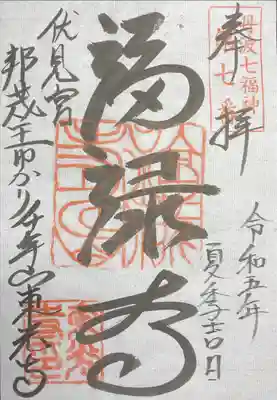 奉拝
丹波七福神
令和五年
夏季吉日
福禄寿
伏見宮
邦茂王ゆかり 千年山東光寺